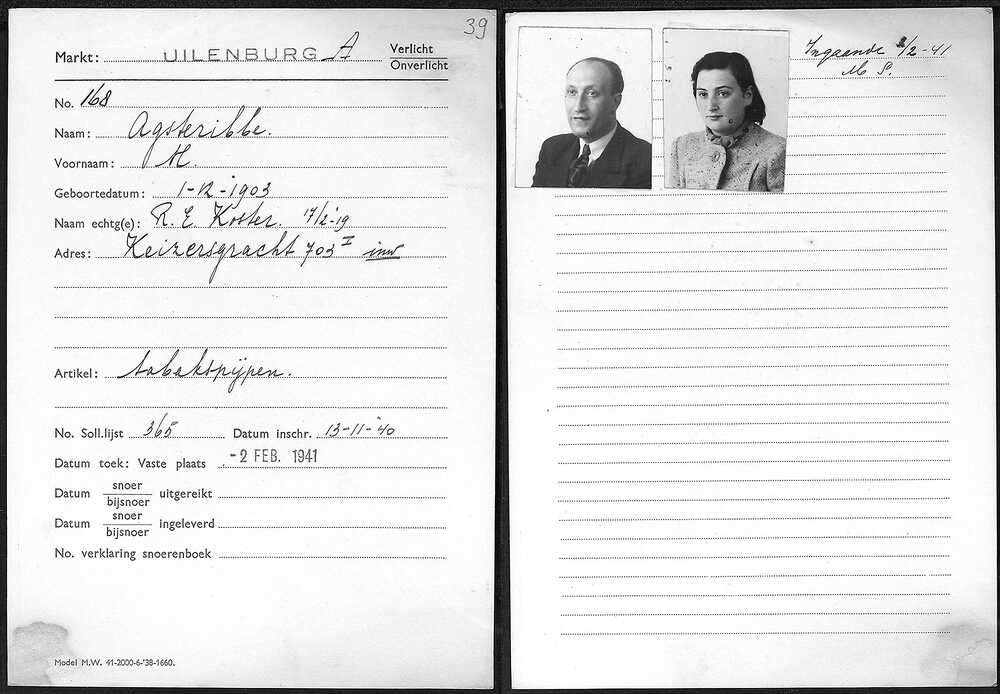 39
Markt: UILENBURG A Verlicht
Onverlicht
No. 168
Naam: Agsteribbe.
Voornaam: M.
Geboortedatum: 1-12-1903
Naam echtg(e): R. E. Koster. 17/2-19
Adres: Keizersgracht 703 I inw
Artikel: tabakspijpen.
No. Soll.lijst 365 Datum inschr. 13-11-'40
Datum toek: Vaste plaats -2 FEB. 1941
Datum snoer uitgereikt
bijsnoer
Datum snoer ingeleverd
bijsnoer
No. verklaring snoerenboek
Model M.W. 41-2000-6-'38-1660.
Ingaande 2/2-41
M S.